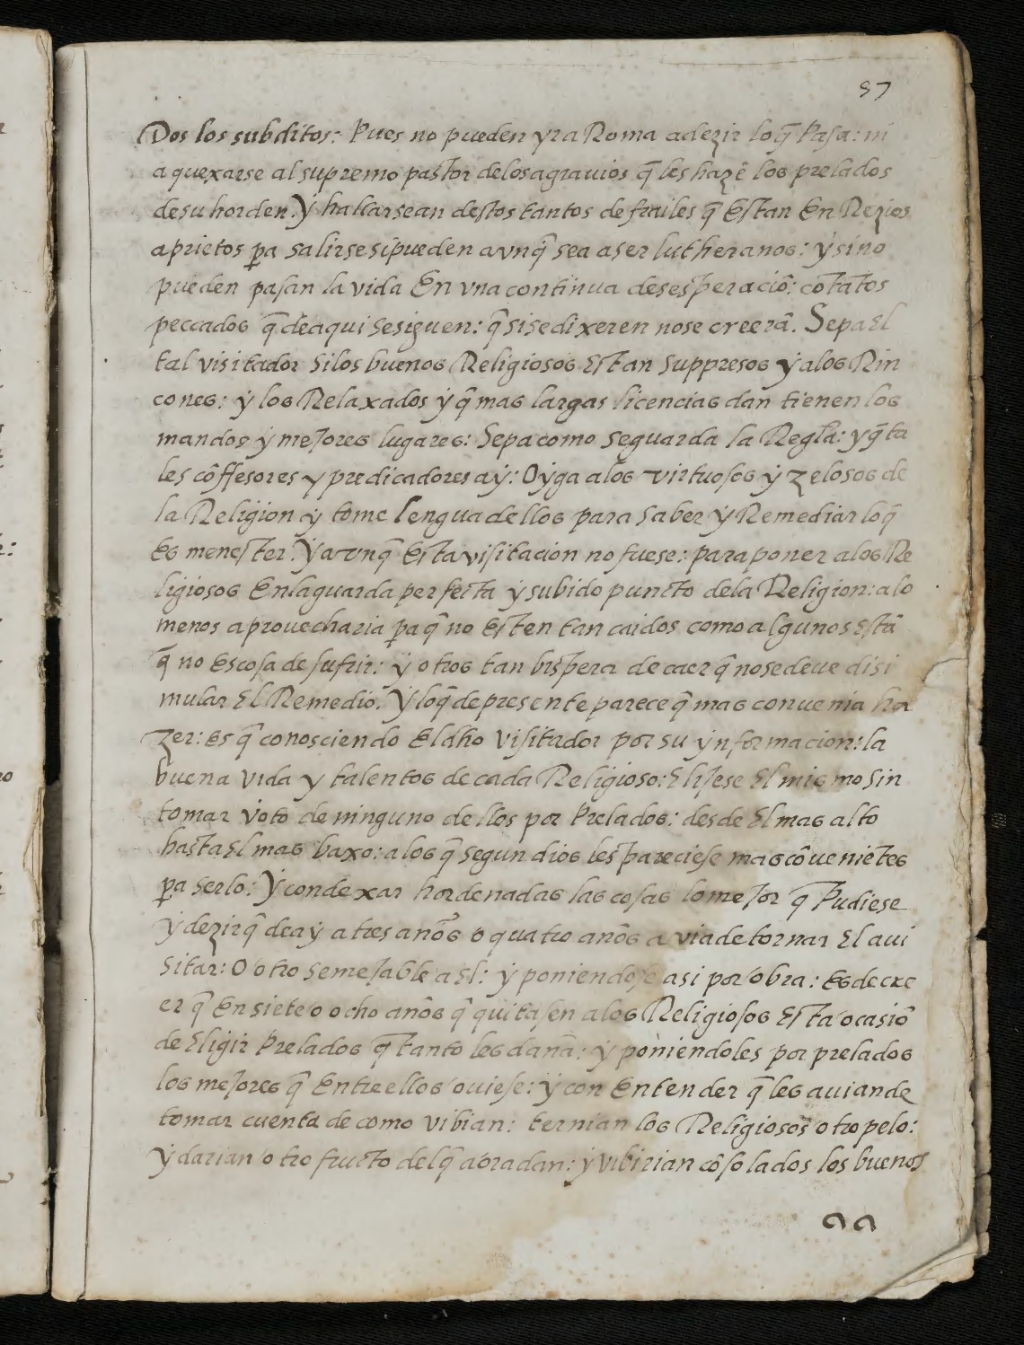 87
Dos los subditos: Pues no pueden yr a Roma a dezir lo q̃ Pasa: ni
a quexarse al supremo pastor de los agrauios q̃ les hazẽ los prelados
de su horden. Y hallarsean destos tantos de frailes q̃ Estan En Rezios
aprietos pa salirse si pueden avnq̃ sea a ser lutheranos: ẏ sino
pueden pasan la vida En vna continua desesperaciõ: cõ tãtos
peccados q̃ de aqui se siguen: q̃ si se dixeren no se creerã. Sepa El
tal visitador si los buenos Religiosos Estan suppresos ẏ a los Rin
cones: ẏ los Relaxados ẏ q̃ mas largas licencias dan tienen los
mandos ẏ mejores lugares: Sepa como se guarda la Regla: y q̃ ta
les cõffesores y predicadores aẏ: Oẏga a los virtuosos ẏ zelosos de
la Religion ẏ tome lengua dellos para saber ẏ Remediar lo q̃
Es menester. Ẏ avnq̃ Esta visitacion no fuese: para poner a los Re
ligiosos En la guarda perfecta ẏ subido puncto de la Religion: a lo
menos aprouecharia pa q̃ no Esten tan caidos como algunos Estã
q̃ no Es cosa de sufrir: ẏ otros tan bispera de caer q̃ no se deue disi
mular El Remedio. Ẏ lo q̃ de presente parece q̃ mas conuenia ha
zer: es q̃ conosciendo El dho visitador por su ẏnformacion: la
buena vida y talentos de cada Religioso: Elijese El mismo sin
tomar voto de ninguno dellos por Prelados: desde El mas alto
hasta El mas baxo: a los q̃ segun dios les pareciese mas cõueniẽtes
pa serlo: Ẏ con dexar hordenadas las cosas lo mejor q̃ Pudiese
ẏ dezir q̃ de aẏ a tres años o quatro años auia de tornar El a ui
sitar: O otro semejable a El: ẏ poniendose asi por obra: Es de cre
er q̃ En siete o ocho años q̃ quitasen a los Religiosos Esta ocasiõ
de Eligir Prelados q̃ tanto les daña: ẏ poniendoles por prelados
los mejores q̃ Entre ellos ouiese: ẏ con Entender q̃ les auian de
tomar cuenta de como vibian: ternian los Religiosos otro pelo:
Ẏ darian otro fructo del q̃ aora dan: ẏ vibirian cõsolados los buenos